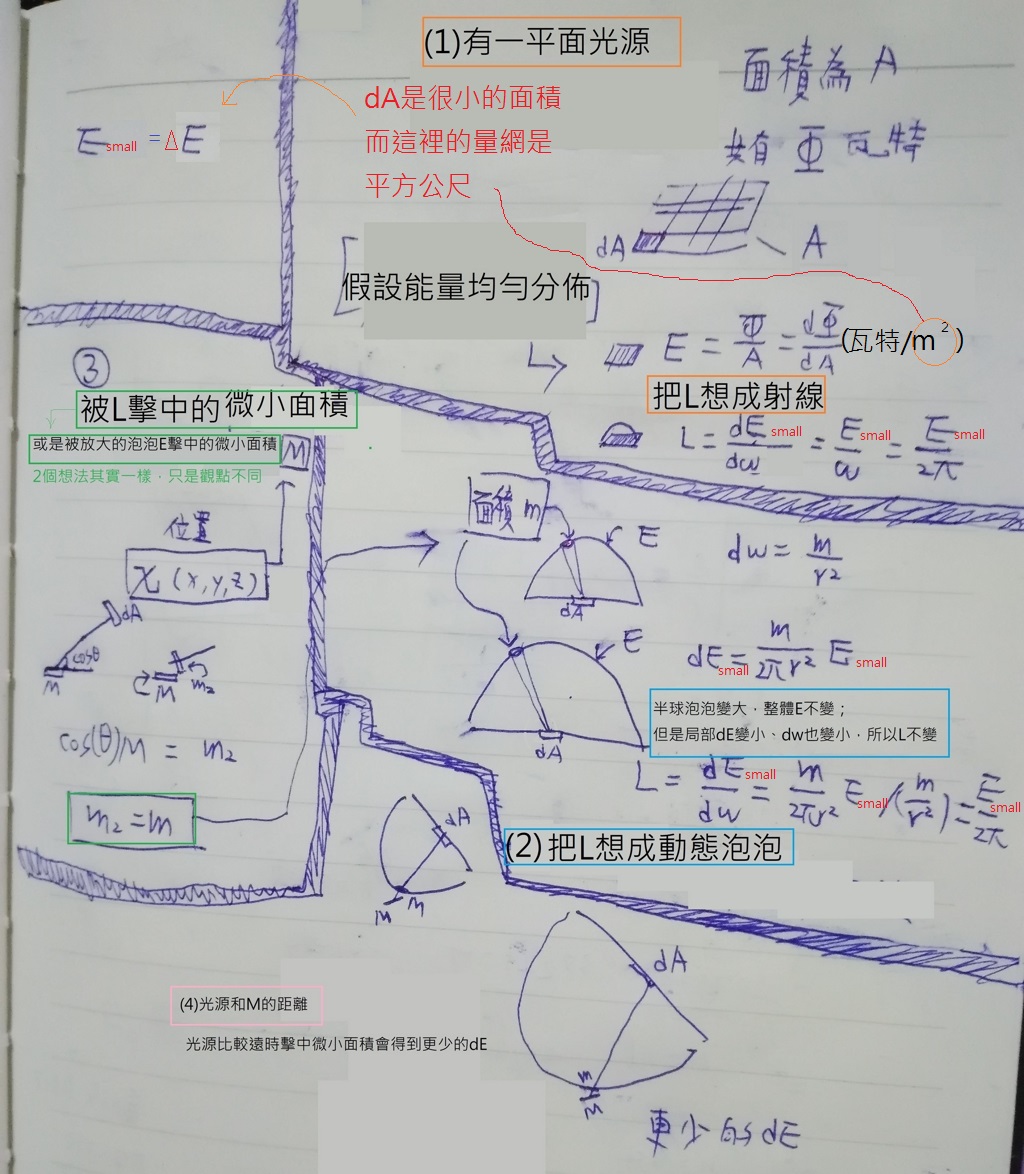 (1)有一平面光源
面積為 A
共有 Φ 瓦特
dA是很小的面積
而這裡的量網是
平方公尺
E small = ΔE
dA
A
[假設能量均勻分佈]
E = Φ/A = dΦ/dA (瓦特/m²)
把L想成射線
L = dE small/dω = E small/ω = E small/2π
③
被L擊中的微小面積
或是被放大的泡泡E擊中的微小面積
M
2個想法其實一樣，只是觀點不同
位置
X (x,y,z)
dA
cosθ
M
M
m₂
cos(θ)M = m₂
m₂ = m
面積 m
E
dA
dw = m/r²
E
dA
dE small = m/2πr² E small
半球泡泡變大，整體E不變；
但是局部dE變小、dw也變小，所以L不變
L = dE small/dw = m/2πr² E small /(m/r²) = E small/2π
(2) 把L想成動態泡泡
dA
M
M
dA
m
M
(4)光源和M的距離
光源比較遠時擊中微小面積會得到更少的dE
更少的dE